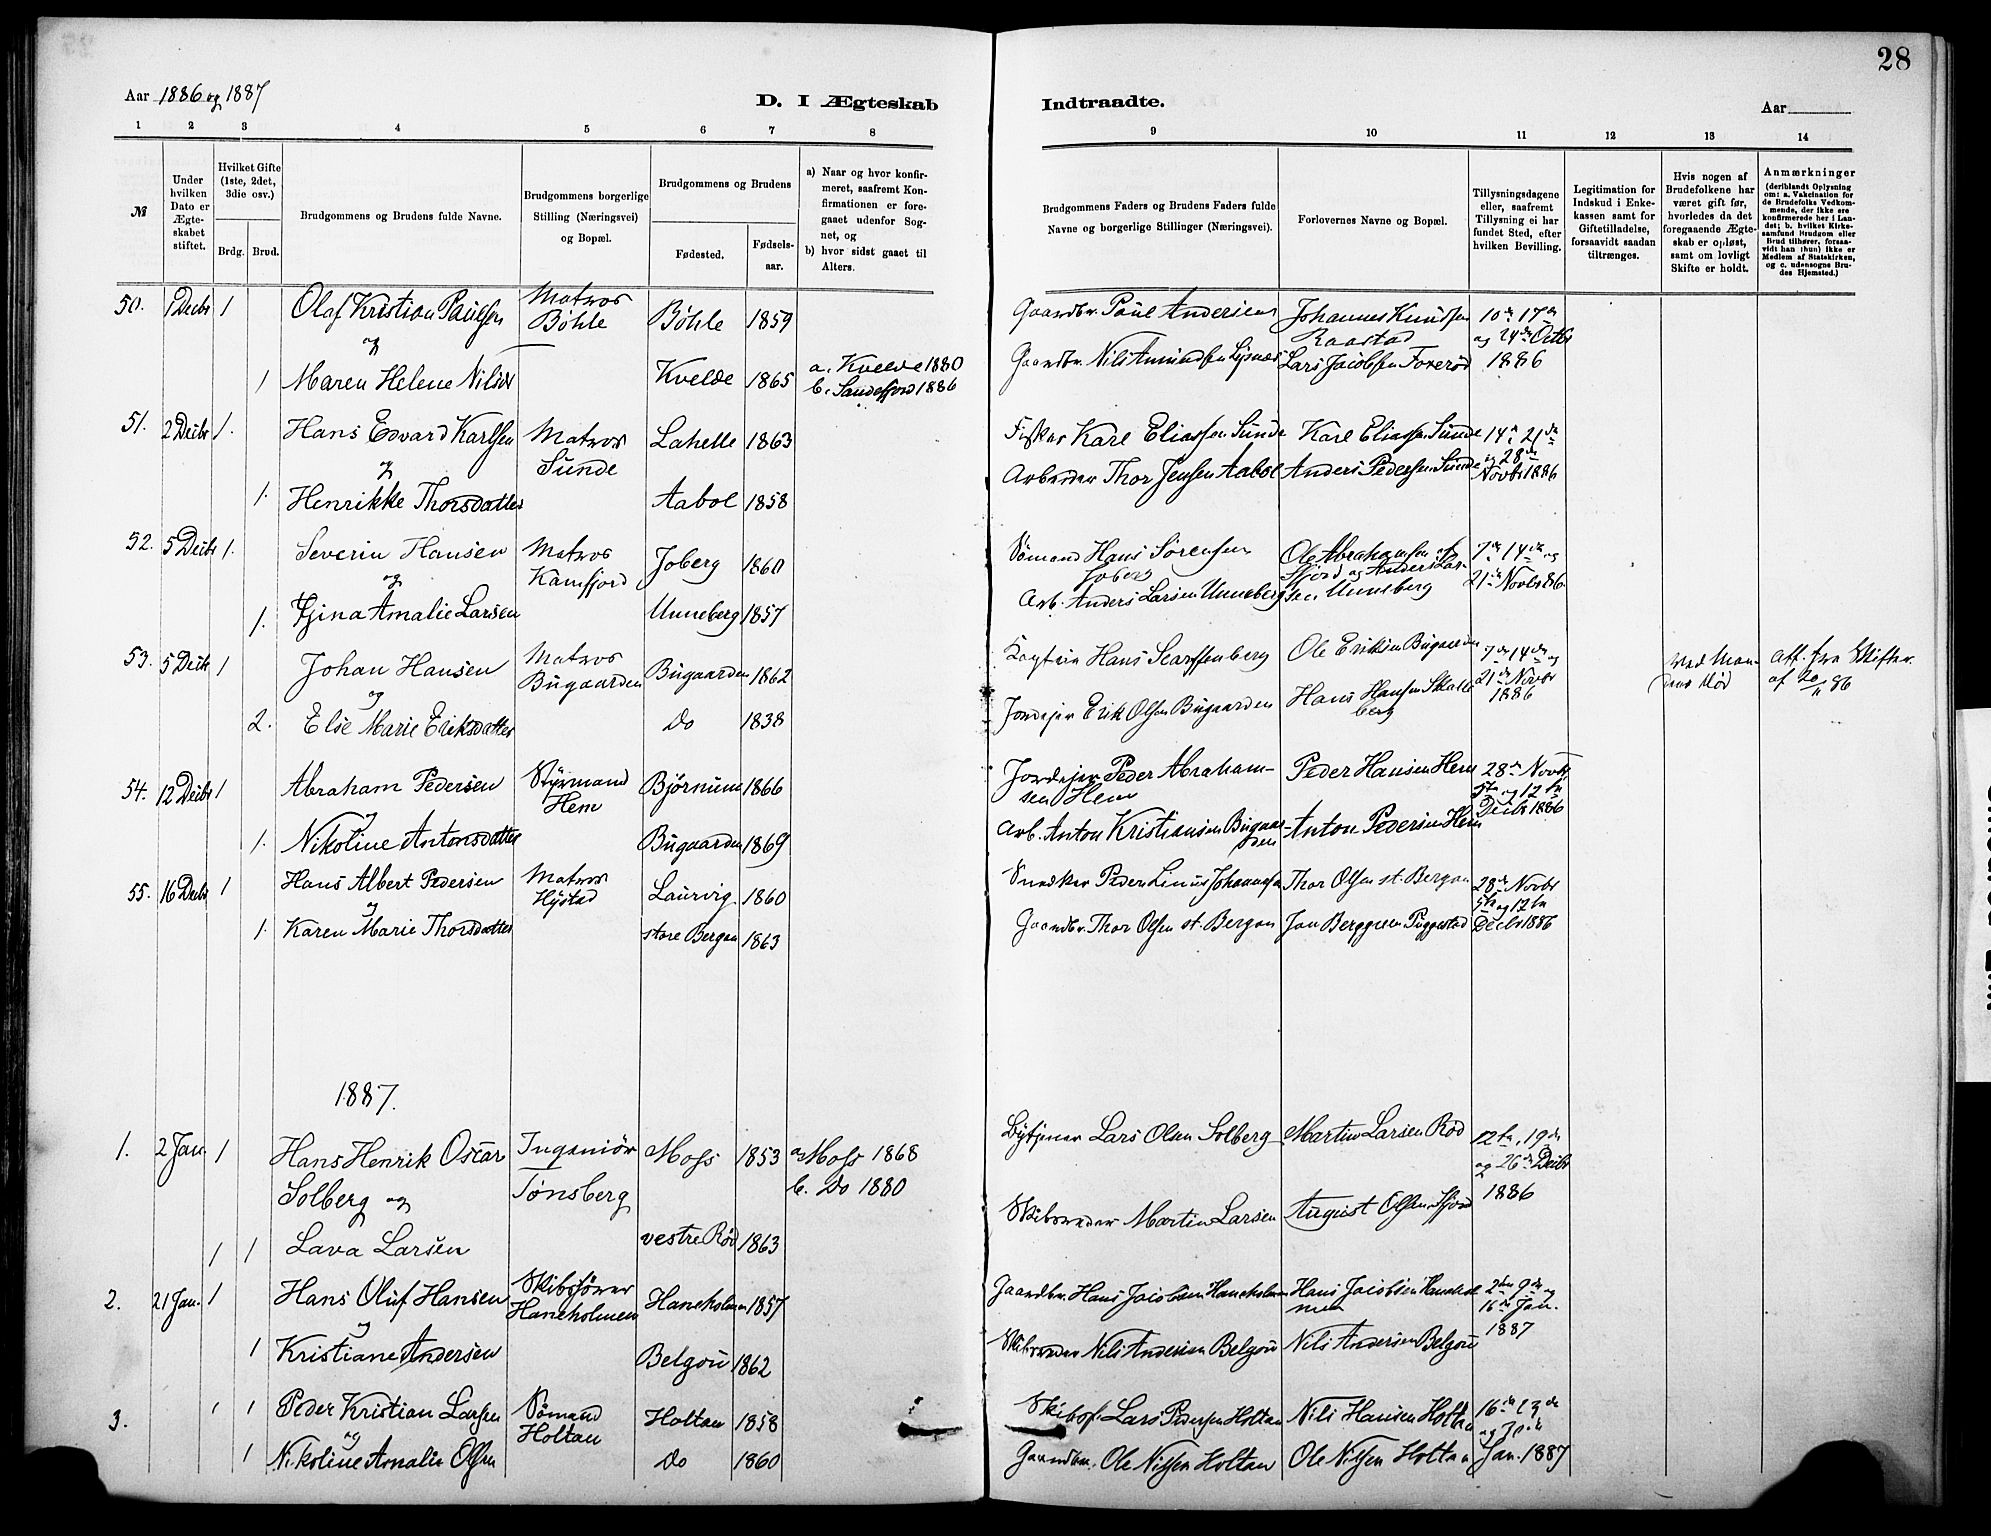 28
Aar 1886 og 1887
D. I Ægteskab Indtraadte.
Aar
1 2 3 4 5 6 7 8 9 10 11 12 13 14
№
Under hvilken Dato er Ægteskabet stiftet.
Hvilket Gifte (1ste, 2det, 3die osv.)
Brdg. Brud.
Brudgommens og Brudens fulde Navne.
Brudgommens borgerlige Stilling (Næringsvei) og Bopæl.
Brudgommens og Brudens
Fødested.
Fødsels-aar.
a) Naar og hvor konfir-
meret, saafremt Kon-
firmationen er fore-
gaaet udenfor Sog-
net, og
b) hvor sidst gaaet til
Alters.
Brudgommens Faders og Brudens Faders fulde
Navne og borgerlige Stillinger (Næringsvei).
Forlovernes Navne og Bopæl.
Tillysningsdagene
eller, saafremt
Tillysning ei har
fundet Sted, efter
hvilken Bevilling.
Legitimation for
Indskud i Enke-
kassen samt for
Giftetilladelse,
forsaavidt saadan
tiltrænges.
Hvis nogen af
Brudefolkene har
været gift før,
hvorledes da det
foregaaende Ægte-
skab er opløst,
samt om lovligt
Skifte er holdt.
Anmærkninger
(deriblandt Oplysning
om: a. Vakcination for
de Brudefolks Vedkom-
mende, der ikke ere
konfirmerede her i Lan-
det; b. hvilket Kirke-
samfund Brudgom eller
Brud tilhører, forsaa-
vidt han (hun) ikke er
Medlem af Statskirken,
og c. udensogne Bru-
des Hjemsted.)
50. 1 Decbr 1 Olaf Kristian Paulsen Matros Bøhle Bøhle 1859 Gaardbr. Paul Andersen Johannes Knudsen Raastad 10de 17de og 24de Octbr 1886
og
1 Maren Helene Nilsdr Kvelde 1865 a. Kvelde 1880 b. Sandefjord 1886 Gaardbr. Nils Amundsen Lars Jacobsen
51. 2 Decbr 1. Hans Edvard Karlsen Matros Sunde Lahelle 1863 Fisker Karl Eliassen Sunde Karl Eliassen Sunde 14de 21de og 28de Novbr 1886
og
1. Henrikke Thorsdatter Aabol 1858 Arbeider Thor Jensen Aabol Anders Pedersen Sunde
52. 5 Decbr 1. Severin Hansen Matros Kamfjord Joberg 1860 Sømand Hans Sørensen Joberg Ole Abrahamsen 7de 14de og 21de Novbr 86
og
1. Amalie Larsen Unneberg 1857 Arb. Anders Larsen Unneberg og Anders Larsen Unneberg
53. 5 Decbr 1 Johan Hansen Matros Bugaarden Bugaarden 1862 Kaptein Hans Ole Eriksen Bugaarden 7de 14de og 21de Novbr 1886 ved Mandens Død Att. fra Skifter. af 20/11 86
og
2. Else Marie Eriksdatter Do 1838 Jordejer Erik Olsen Bugaarden Hans Hansen
54. 12 Decbr 1 Abraham Pedersen Styrmand Hem Bjørnum 1866 Jordejer Peder Abrahamsen Hem Peder Hansen Hem 28de Novbr 5te og 12te Decbr 1886
og
1. Nikoline Antonsdatter Bugaarden 1869 Arb. Anton Kristiansen Bugaarden Anton Pedersen Hem
55. 16 Decbr 1 Hans Albert Pedersen Matros Hystad Laurvig 1860 Snedker Peder Linus Johannesen Thor Olsen st. Bergan 28de Novbr 5te og 12te Decbr 1886
og
1. Karen Marie Thorsdatter store Bergan 1863 Gaardbr. Thor Olsen st. Bergan Jan Berggren Puggestad
1887.
1. 2 Jan. 1 Hans Henrik Oscar Solberg og Ingeniør Tønsberg Moss 1853 a. Moss 1868 b. Do 1880 Bytjener Lars Olsen Solberg Martin Larsen Rød 12te, 19de og 26de Decbr 1886
1 1 Lava Larsen vestre Rød 1863 Skibsreder Martin Larsen August Olsen
2. 21 Jan. 1 Hans Oluf Hansen Skibsfører Haneholmen Haneholmen 1857 Gaardbr. Hans Jacobsen Haneholmen Hans Jacobsen Haneholmen 2den 9de og 16de Jan. 1887
og
1 Kristiane Andersen Belgou 1862 Skibsreder Nils Andersen Belgou Nils Andersen Belgou
3. 1 1 Peder Kristian Larsen Sømand Holtan Holtan 1858 Skibsf. Lars Pedersen Holtan Nils Hansen Holtan 16de 23de og 30de Jan. 1887
og
1 Nikoline Amalie Olsen Do 1860 Gaardbr. Ole Nilsen Holtan Ole Nilsen Holtan